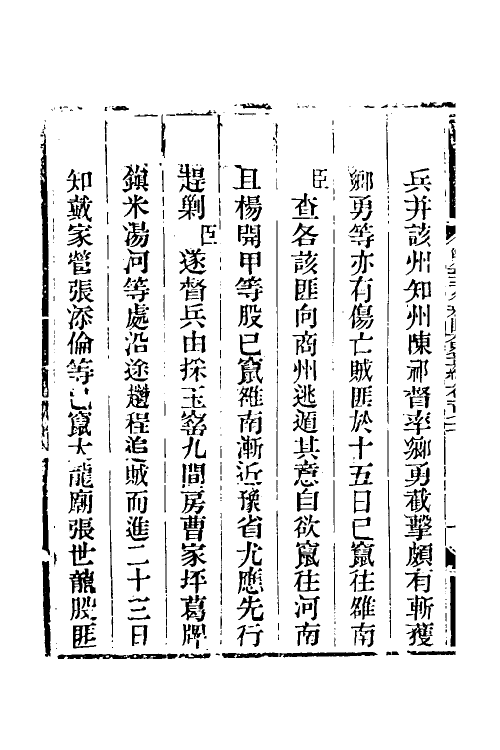 兵并該州知州陳祁督率鄉勇截擊頗有斬獲
鄉勇等亦有傷亡賊匪於十五日已竄往雒南
臣查各該匪向商州逃遁其意自欲竄往河南
且楊開甲等股已竄雒南漸近豫省尤應先行
趕剿臣遂督兵由採玉窰九間房曹家坪葛牌
鎮米湯河等處沿途趲程追賊而進二十三日
知戴家營張添倫等已竄大龍廟張世龍股匪